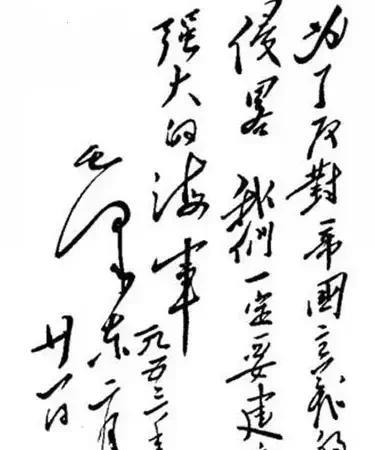 为了反對帝國主義的
侵畧 我們一定要建
强大的海軍
毛澤东
一九五三年
二月
廿一日